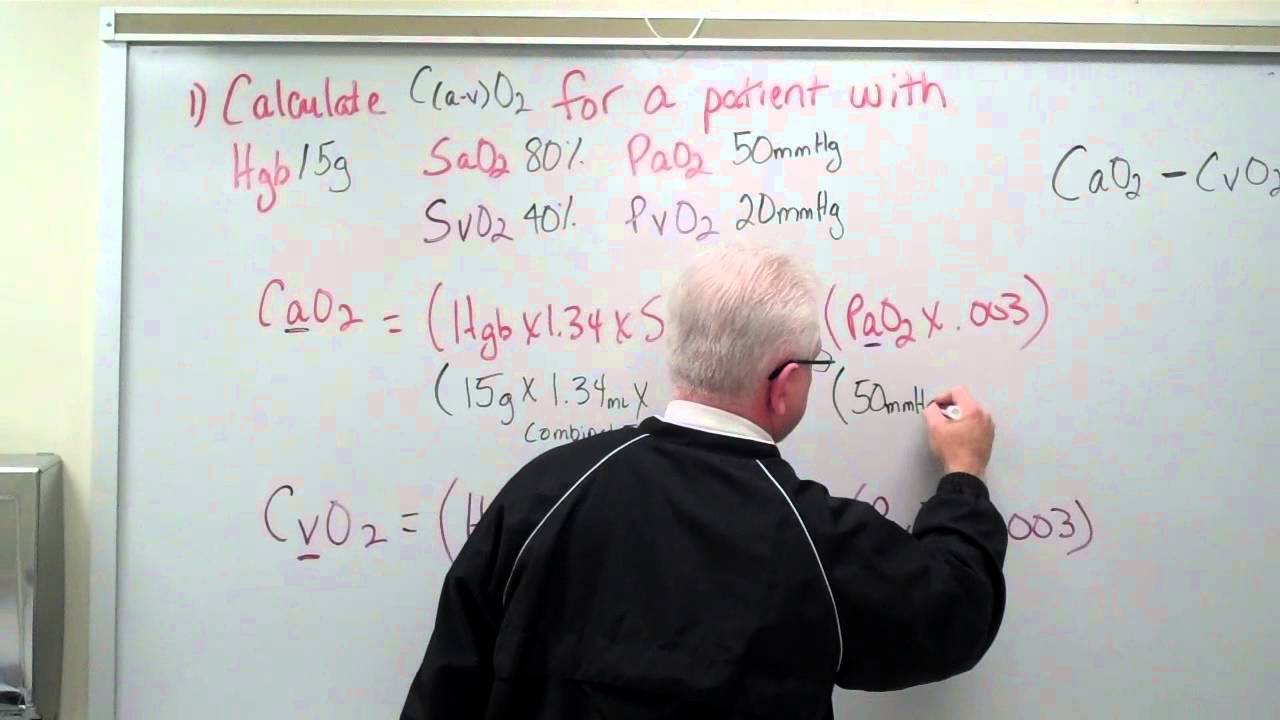 1) Calculate C(a-v)O2 for a patient with
Hgb 15g SaO2 80% PaO2 50mmHg
SvO2 40% PvO2 20mmHg
CaO2 - CvO2
CaO2 = (Hgb x 1.34 x S (PaO2 x .003)
(15g x 1.34 mL x (50mmH
CvO2 = (H .003)